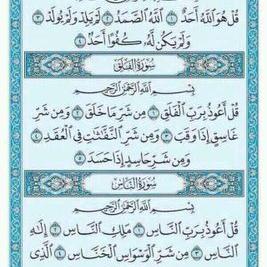 قُلْ هُوَ ٱللَّهُ أَحَدٌ ١ ٱللَّهُ ٱلصَّمَدُ ٢ لَمْ يَلِدْ وَلَمْ يُولَدْ ٣
وَلَمْ يَكُن لَّهُۥ كُفُوًا أَحَدٌۢ ٤
سُورَةُ الْفَلَقِ
بِسْمِ ٱللَّهِ ٱلرَّحْمَٰنِ ٱلرَّحِيمِ
قُلْ أَعُوذُ بِرَبِّ ٱلْفَلَقِ ١ مِن شَرِّ مَا خَلَقَ ٢ وَمِن شَرِّ
غَاسِقٍ إِذَا وَقَبَ ٣ وَمِن شَرِّ ٱلنَّفَّٰثَٰتِ فِى ٱلْعُقَدِ ٤
وَمِن شَرِّ حَاسِدٍ إِذَا حَسَدَ ٥
سُورَةُ النَّاسِ
بِسْمِ ٱللَّهِ ٱلرَّحْمَٰنِ ٱلرَّحِيمِ
قُلْ أَعُوذُ بِرَبِّ ٱلنَّاسِ ١ مَلِكِ ٱلنَّاسِ ٢ إِلَٰهِ
ٱلنَّاسِ ٣ مِن شَرِّ ٱلْوَسْوَاسِ ٱلْخَنَّاسِ ٤ ٱلَّذِى